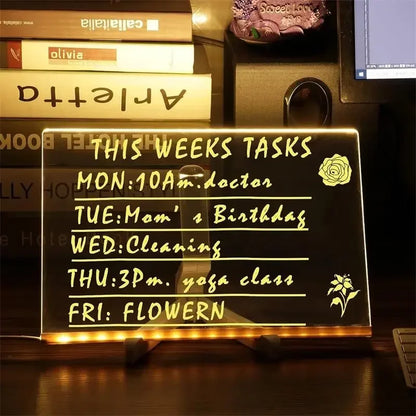 callaitalia
olivia
Arletta
THE HOTEL BOOK
LLY HOPPEN
The Hote
Sweet Love
THIS WEEKS TASKS
MON:10Am.doctor
TUE:Mom's Birthday
WED:Cleaning
THU:3Pm. yoga class
FRI: FLOWERN